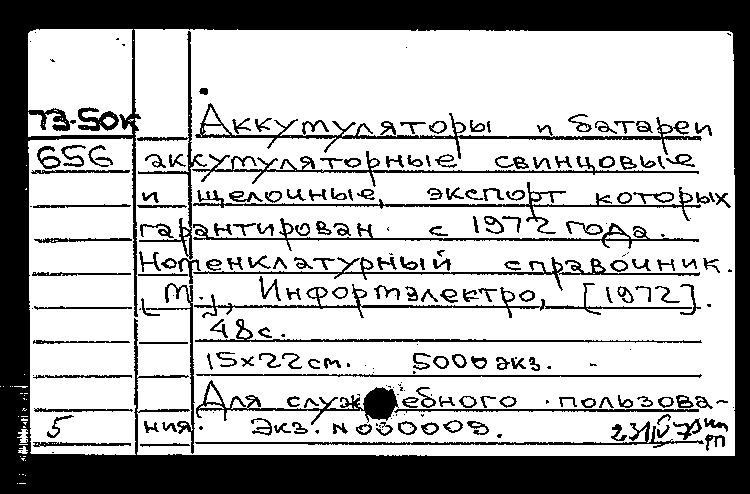 73-50к Аккумуляторы и батареи
656 аккумуляторные свинцовые
и щелочные, экспорт которых
гарантирован с 1972 года.
Номенклатурный справочник.
[М.], Информэлектро, [1972].
48с.
15x22см. 5000экз.
Для служебного пользова-
5 ния. Экз. N000009.